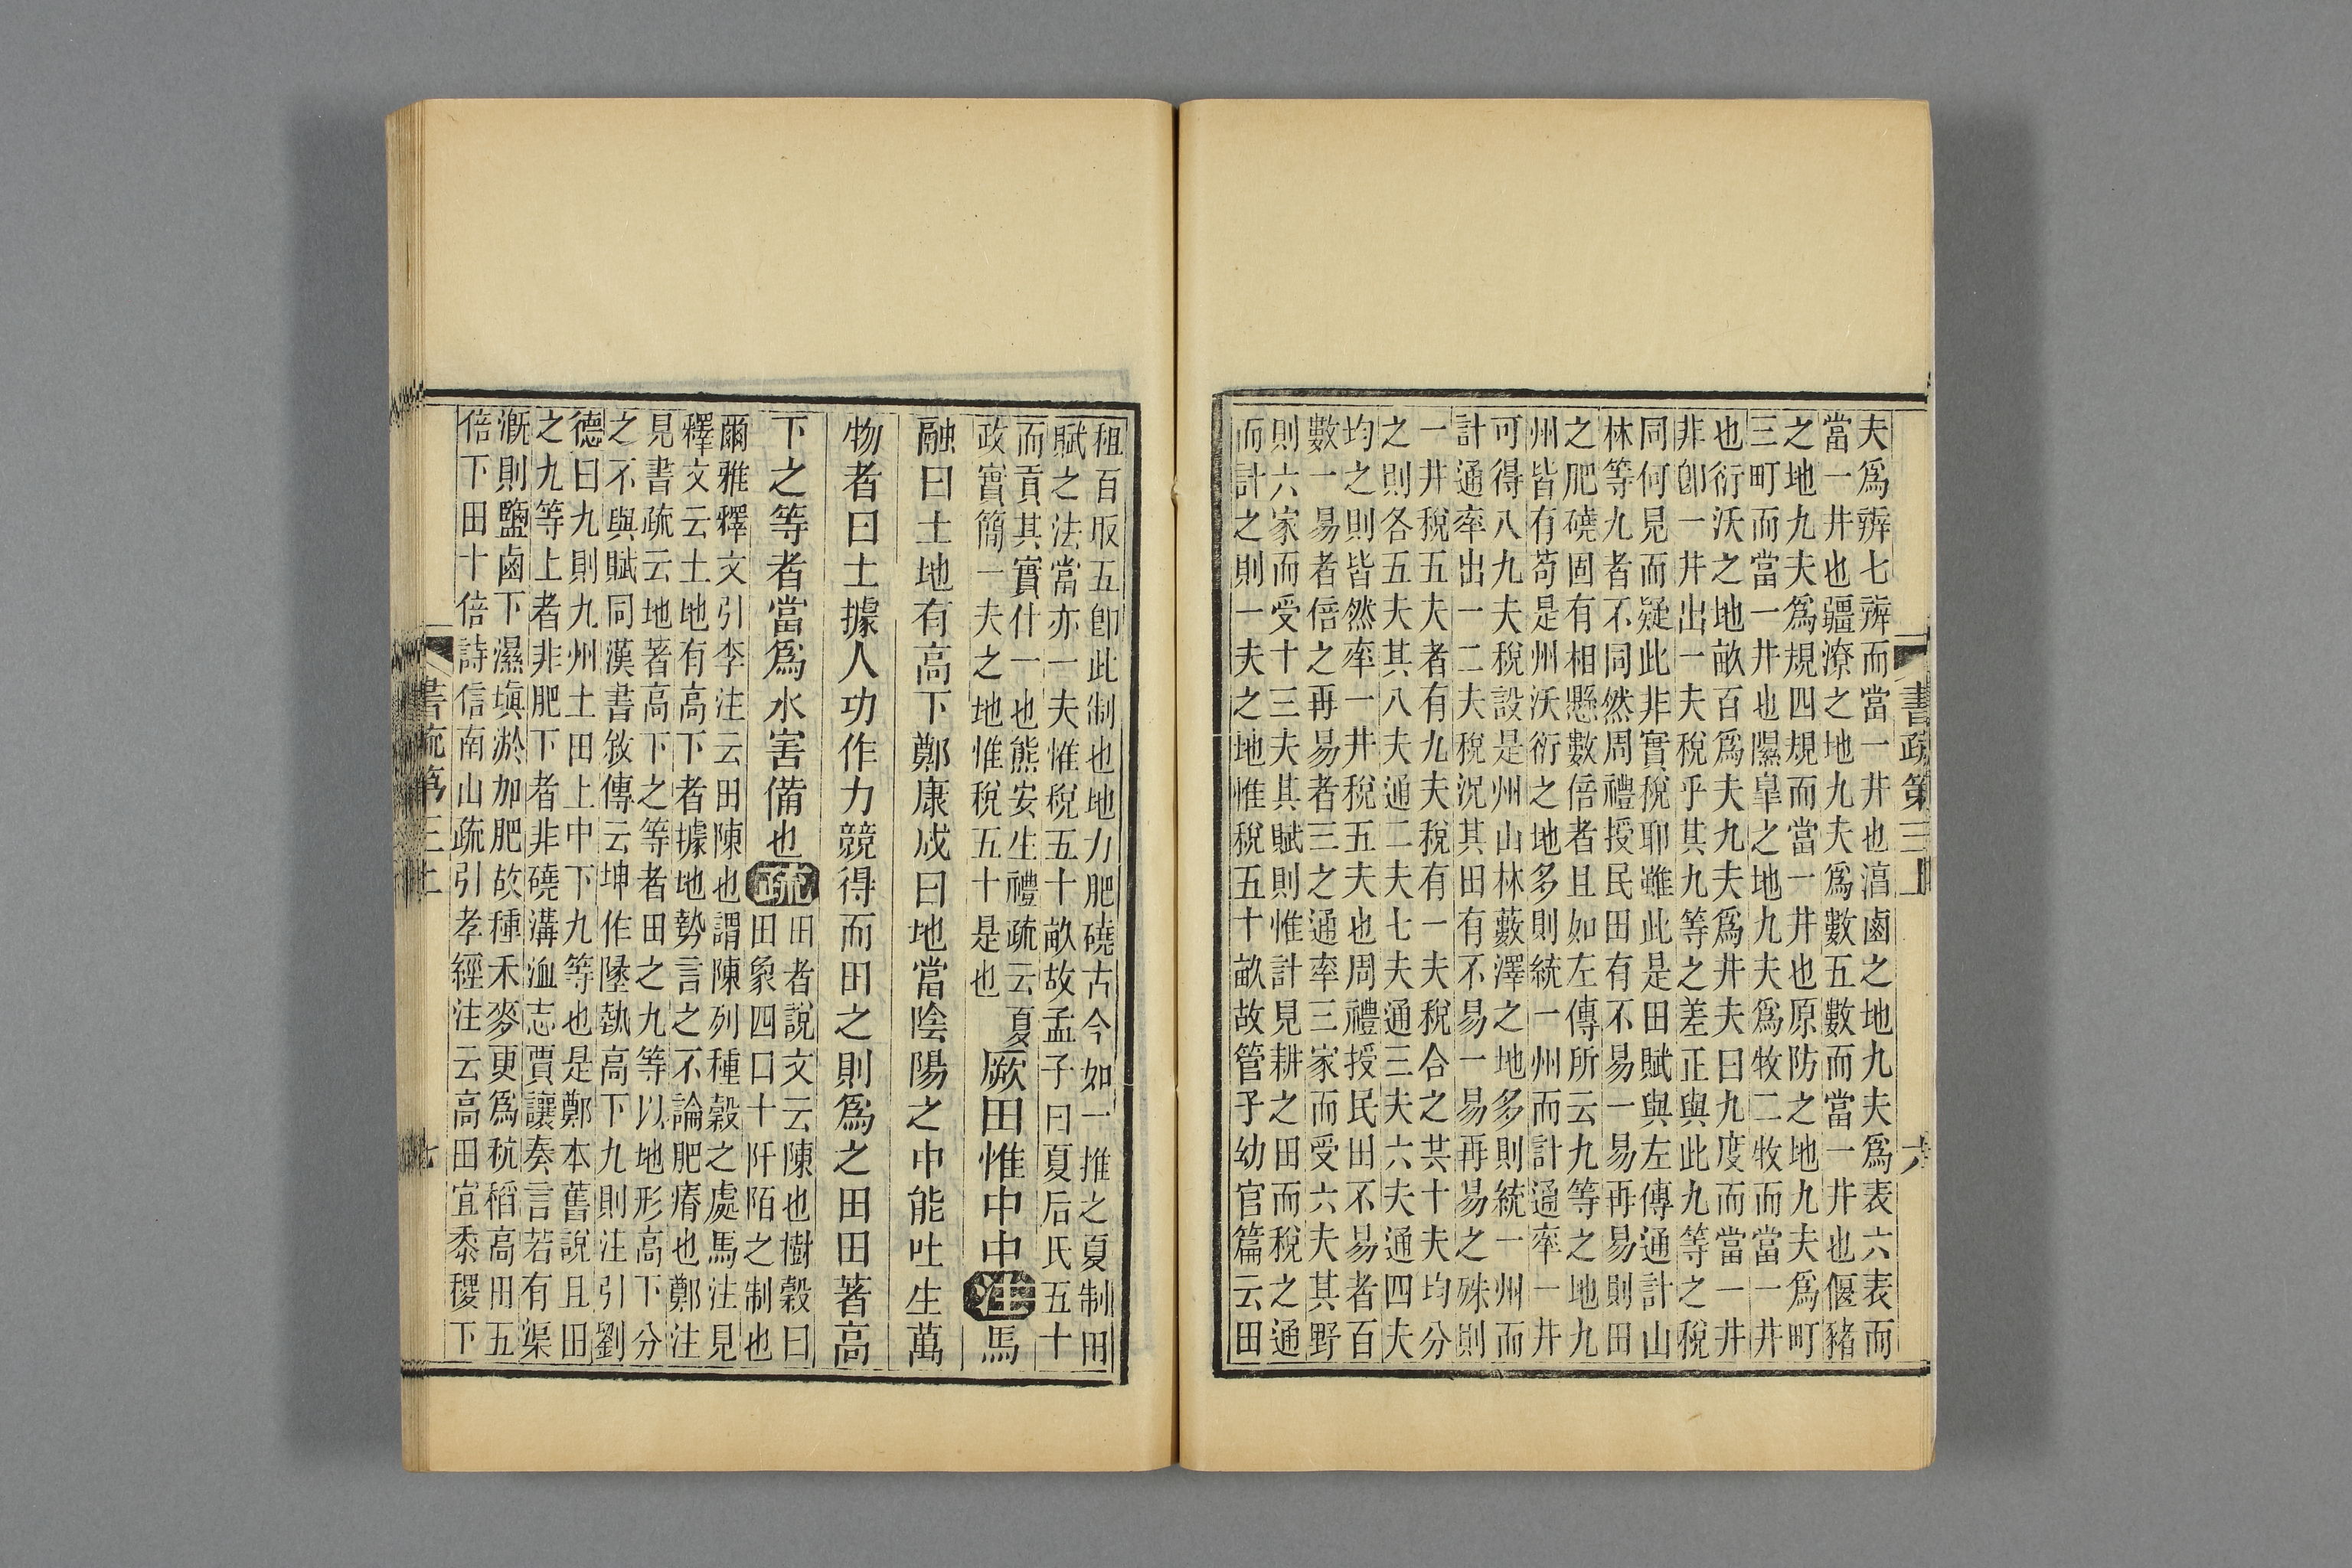 夫爲辨七辨而當一井也㵎鹵之地九夫爲表六表而
當一井也疆潦之地九夫爲數五數而當一井也偃豬
之地九夫爲規四規而當一井也原防之地九夫爲町
三町而當一井也隰皐之地九夫爲牧二牧而當一井
也衍沃之地畝百爲夫九夫爲井夫曰九度而當一井
非卽一井出一夫稅乎其九等之差正與此九等之稅
同何見而疑此非實稅耶雖此是田賦與左傳通計山
林等九者不同然周禮授民田有不易一易再易則田
之肥磽固有相懸數倍者且如左傳所云九等之地九
州皆有苟是州沃衍之地多則統一州而計通率一井
可得八九夫稅設是州山林藪澤之地多則統一州而
計通率出一二夫稅況其田有不易一易再易之殊則
一井稅五夫者有九夫稅有一夫稅合之其十夫均分
之則各五夫其八夫通二夫七夫通三夫六夫通四夫
均之則皆然率一井稅五夫也周禮授民田不易者百
數一易者倍之再易者三之通率三家而受六夫其野
則六家而受十三夫其賦則惟計見耕之田而稅之通
而計之則一夫之地惟稅五十畝故管子幼官篇云田
書疏第三上
六
租百取五卽此制也地力肥磽古今如一推之夏制田
賦之法當亦一夫惟稅五十畝故孟子曰夏后氏五十
而貢其實什一也熊安生禮疏云夏
政實簡一夫之地惟稅五十是也
厥田惟中中注馬
融曰土地有高下鄭康成曰地當陰陽之中能吐生萬
物者曰土據人功作力競得而田之則爲之田田著高
下之等者當爲水害備也疏
田者說文云陳也樹穀曰
田象四口十阡陌之制也
爾雅釋文引李注云田陳也謂陳列種穀之處馬注見
釋文云土地有高下者據地勢言之不論肥瘠也鄭注
見書疏云地著高下之等者田之九等以地形高下分
之不與賦同漢書敘傳云坤作墬埶高下九則注引劉
德曰九則九州土田上中下九等也是鄭本舊說且田
之九等上者非肥下者非磽溝洫志賈讓奏言若有渠
漑則鹽鹵下濕塡淤加肥故種禾麥更爲秔稻高田五
倍下田十倍詩信南山疏引孝經注云高田宜黍稷下
書疏第三上
七